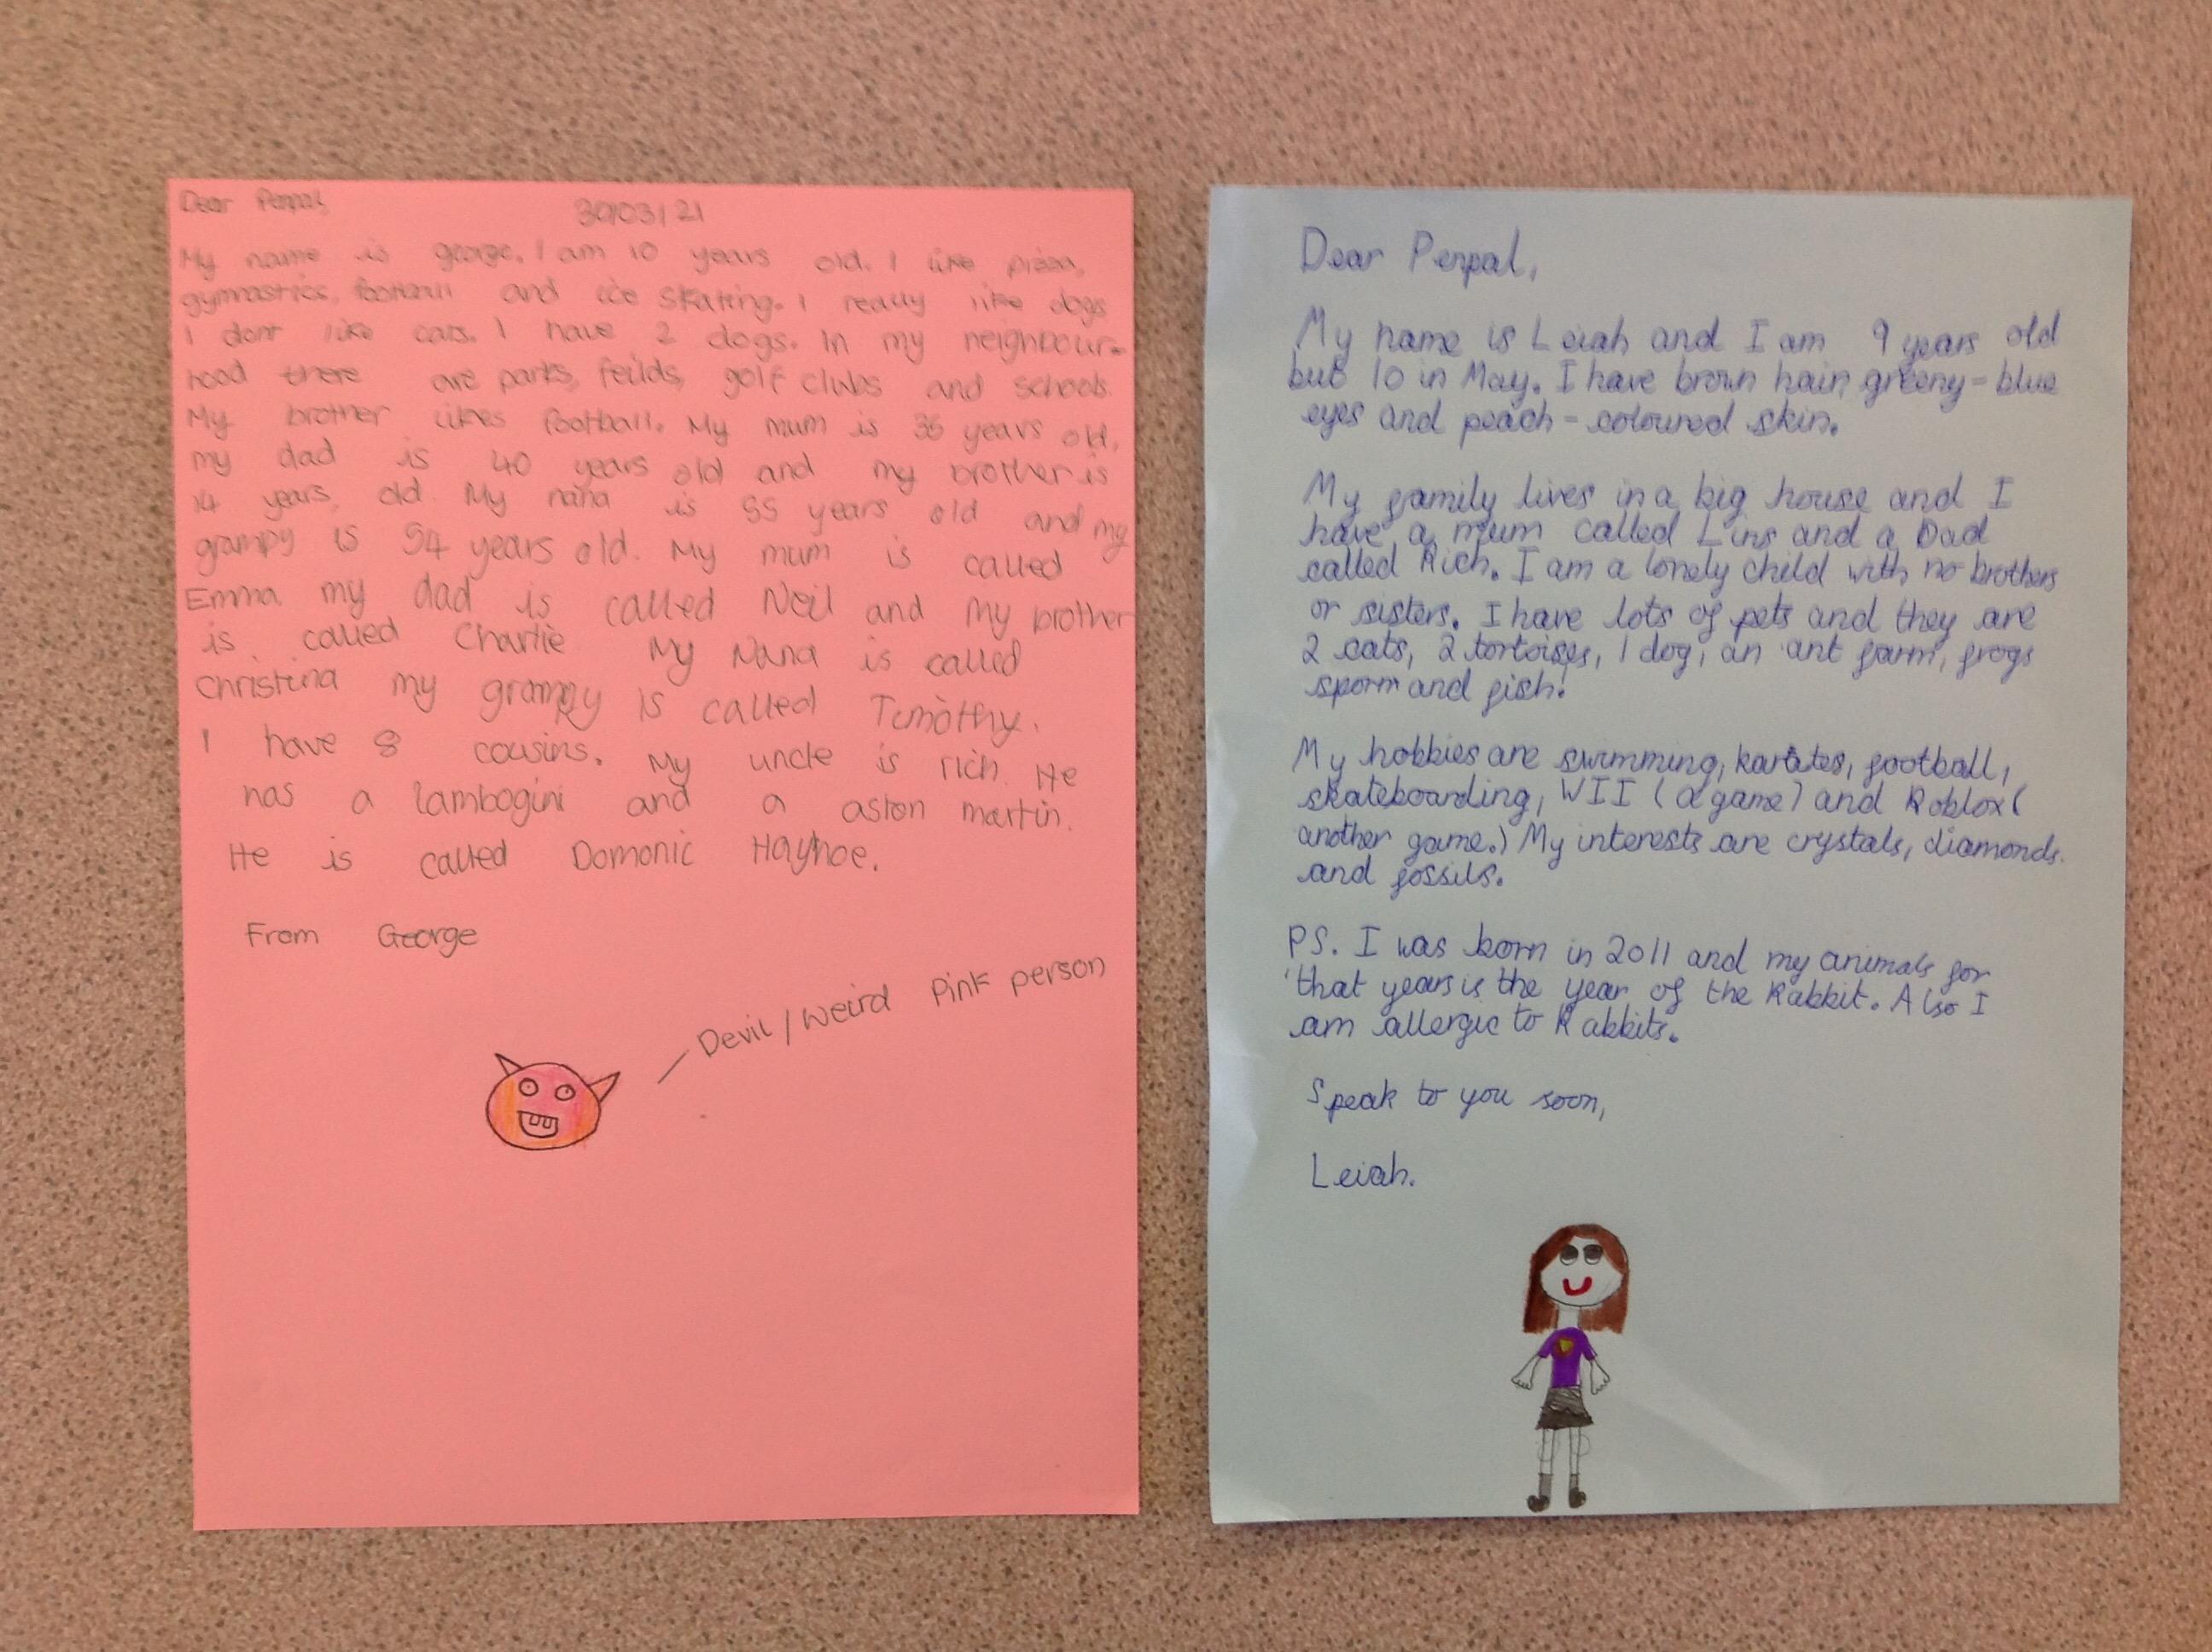 Dear Penpal,
30/03/21
My name is george. I am 10 years old. I like pizza,
gymnastics, football and ice skating. I really like dogs
I dont like cats. I have 2 dogs. In my neighbour-
hood there are parks, feilds, golf clubs and schools.
My brother likes football. My mum is 36 years old,
my dad is 40 years old and my brother is
14 years, old. My nana is 55 years old and my
grampy is 54 years old. My mum is called
Emma my dad is called Neil and my brother
is called Charlie My Nana is called
Christina my grampy is called Timothy.
I have 8 cousins. My uncle is rich. He
has a lambogini and a aston martin.
He is called Domonic Haynoe.
From George
Devil / Weird Pink person
Dear Penpal,
My name is Leiah and I am 9 years old
but 10 in May. I have brown hair, greeny-blue
eyes and peach-coloured skin.
My family lives in a big house and I
have a mum called Lins and a Dad
called Rich. I am a lonely child with no brothers
or sisters. I have lots of pets and they are
2 cats, 2 tortoises, 1 dog, an ant farm, frogs
sporm and fish!
My hobbies are swimming, karates, football,
skateboarding, WII (a game) and Roblox(
another game.) My interests are crystals, diamonds.
and fossils.
PS. I was born in 2011 and my animals for
that years is the year of the Rabbit. Also I
am allergic to Rabbits.
Speak to you soon,
Leiah.